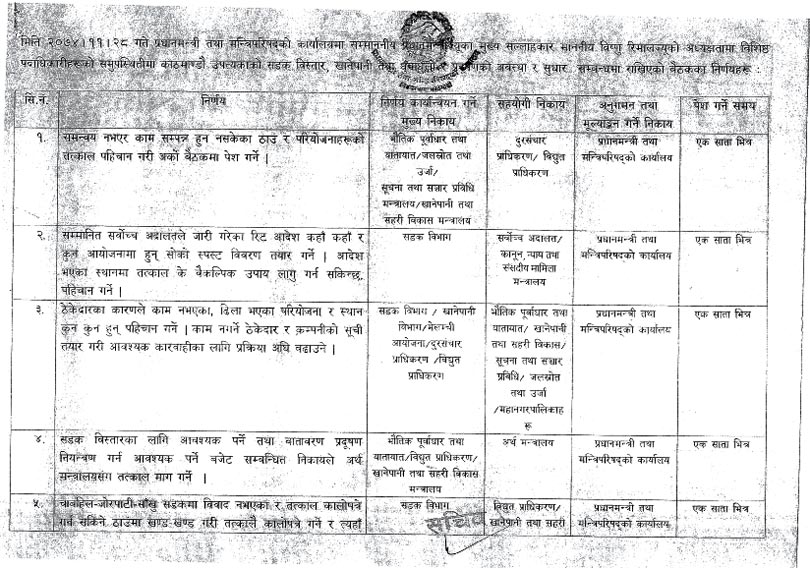 मिति २०७४।११।२८ गते प्रधानमन्त्री तथा मन्त्रिपरिषद्को कार्यालयमा सम्माननीय प्रधानमन्त्रीज्युका मुख्य सल्लाहकार माननीय विष्णु रिमालज्यूको अध्यक्षतामा विशिष्ठ
पदाधिकारीहरूको समुपस्थितीमा काठमाण्डौ उपत्यकाको सडक विस्तार, खानेपानी तथा अवस्था र सुधार सम्बन्धमा राखिएको बैठकका निर्णयहरू :
सि.नं. निर्णय निर्णय कार्यान्वयन गर्ने मुख्य निकाय सहयोगी निकाय अनुगमन तथा मूल्याङ्कन गर्ने निकाय पेश गर्ने समय
१. समन्वय नभएर काम सम्पन्न हुन नसकेका ठाउँ र परियोजनाहरूको
तत्काल पहिचान गरी अर्को बैठकमा पेश गर्ने |
भौतिक पूर्वाधार तथा
यातायात/जलस्रोत तथा
उर्जा/
सूचना तथा सञ्चार प्रविधि
मन्त्रालय/खानेपानी तथा
सहरी विकास मन्त्रालय
दुरसंचार
प्राधिकरण/ विद्युत
प्राधिकरण
प्रधानमन्त्री तथा
मन्त्रिपरिषद्को कार्यालय
एक साता भित्र
२. सम्मानित सर्वोच्च अदालतले जारी गरेका रिट आदेश कहाँ कहाँ र
कुन आयोजनामा हुन् सोको स्पस्ट विवरण तयार गर्ने | आदेश
भएका स्थानमा तत्काल के बैकल्पिक उपाय लागु गर्न सकिन्छ,
पहिचान गर्ने |
सडक विभाग
सर्वोच्च अदालत/
कानून, न्याय तथा
संसदीय मामिला
मन्त्रालय
प्रधानमन्त्री तथा
मन्त्रिपरिषद्को कार्यालय
एक साता भित्र
३. ठेकेदारका कारणले काम नभएका, ढिला भएका परियोजना र स्थान
कुन कुन हुन् पहिचान गर्ने | काम नगर्ने ठेकेदार र कम्पनीको सूची
तयार गरी आवश्यक कारवाहीका लागि प्रक्रिया अघि बढाउने |
सडक विभाग / खानेपानी
विभाग/मेलम्ची
आयोजना/दुरसंचार
प्राधिकरण /विद्युत
प्राधिकरण
भौतिक पूर्वाधार तथा
यातायात/ खानेपानी
तथा सहरी विकास/
सूचना तथा सञ्चार
प्रविधि/ जलस्रोत
तथा उर्जा
/महानगरपालिकाह
रू
प्रधानमन्त्री तथा
मन्त्रिपरिषद्को कार्यालय
एक साता भित्र
४. सडक विस्तारका लागि आवश्यक पर्ने तथा वातावरण प्रदूषण
नियन्त्रण गर्न आवश्यक पर्ने बजेट सम्बन्धित निकायले अर्थ
मन्त्रालयसंग तत्काल माग गर्ने |
भौतिक पूर्वाधार तथा
यातायात/विद्युत प्राधिकरण/
खानेपानी तथा सहरी विकास
मन्त्रालय
अर्थ मन्त्रालय
प्रधानमन्त्री तथा
मन्त्रिपरिषद्को कार्यालय
एक साता भित्र
५. चावहिल-जोरपाटी-साँखु सडकमा विवाद नभएको र तत्काल कालोपत्रे
गर्न सकिने ठाउँमा खण्ड-खण्ड गरी तत्कालै कालोपत्रे गर्ने र त्यहाँ
सडक विभाग
विद्युत प्राधिकरण/
खानेपानी तथा सहरी
प्रधानमन्त्री तथा
मन्त्रिपरिषद्को कार्यालय
एक साता भित्र
सचिव